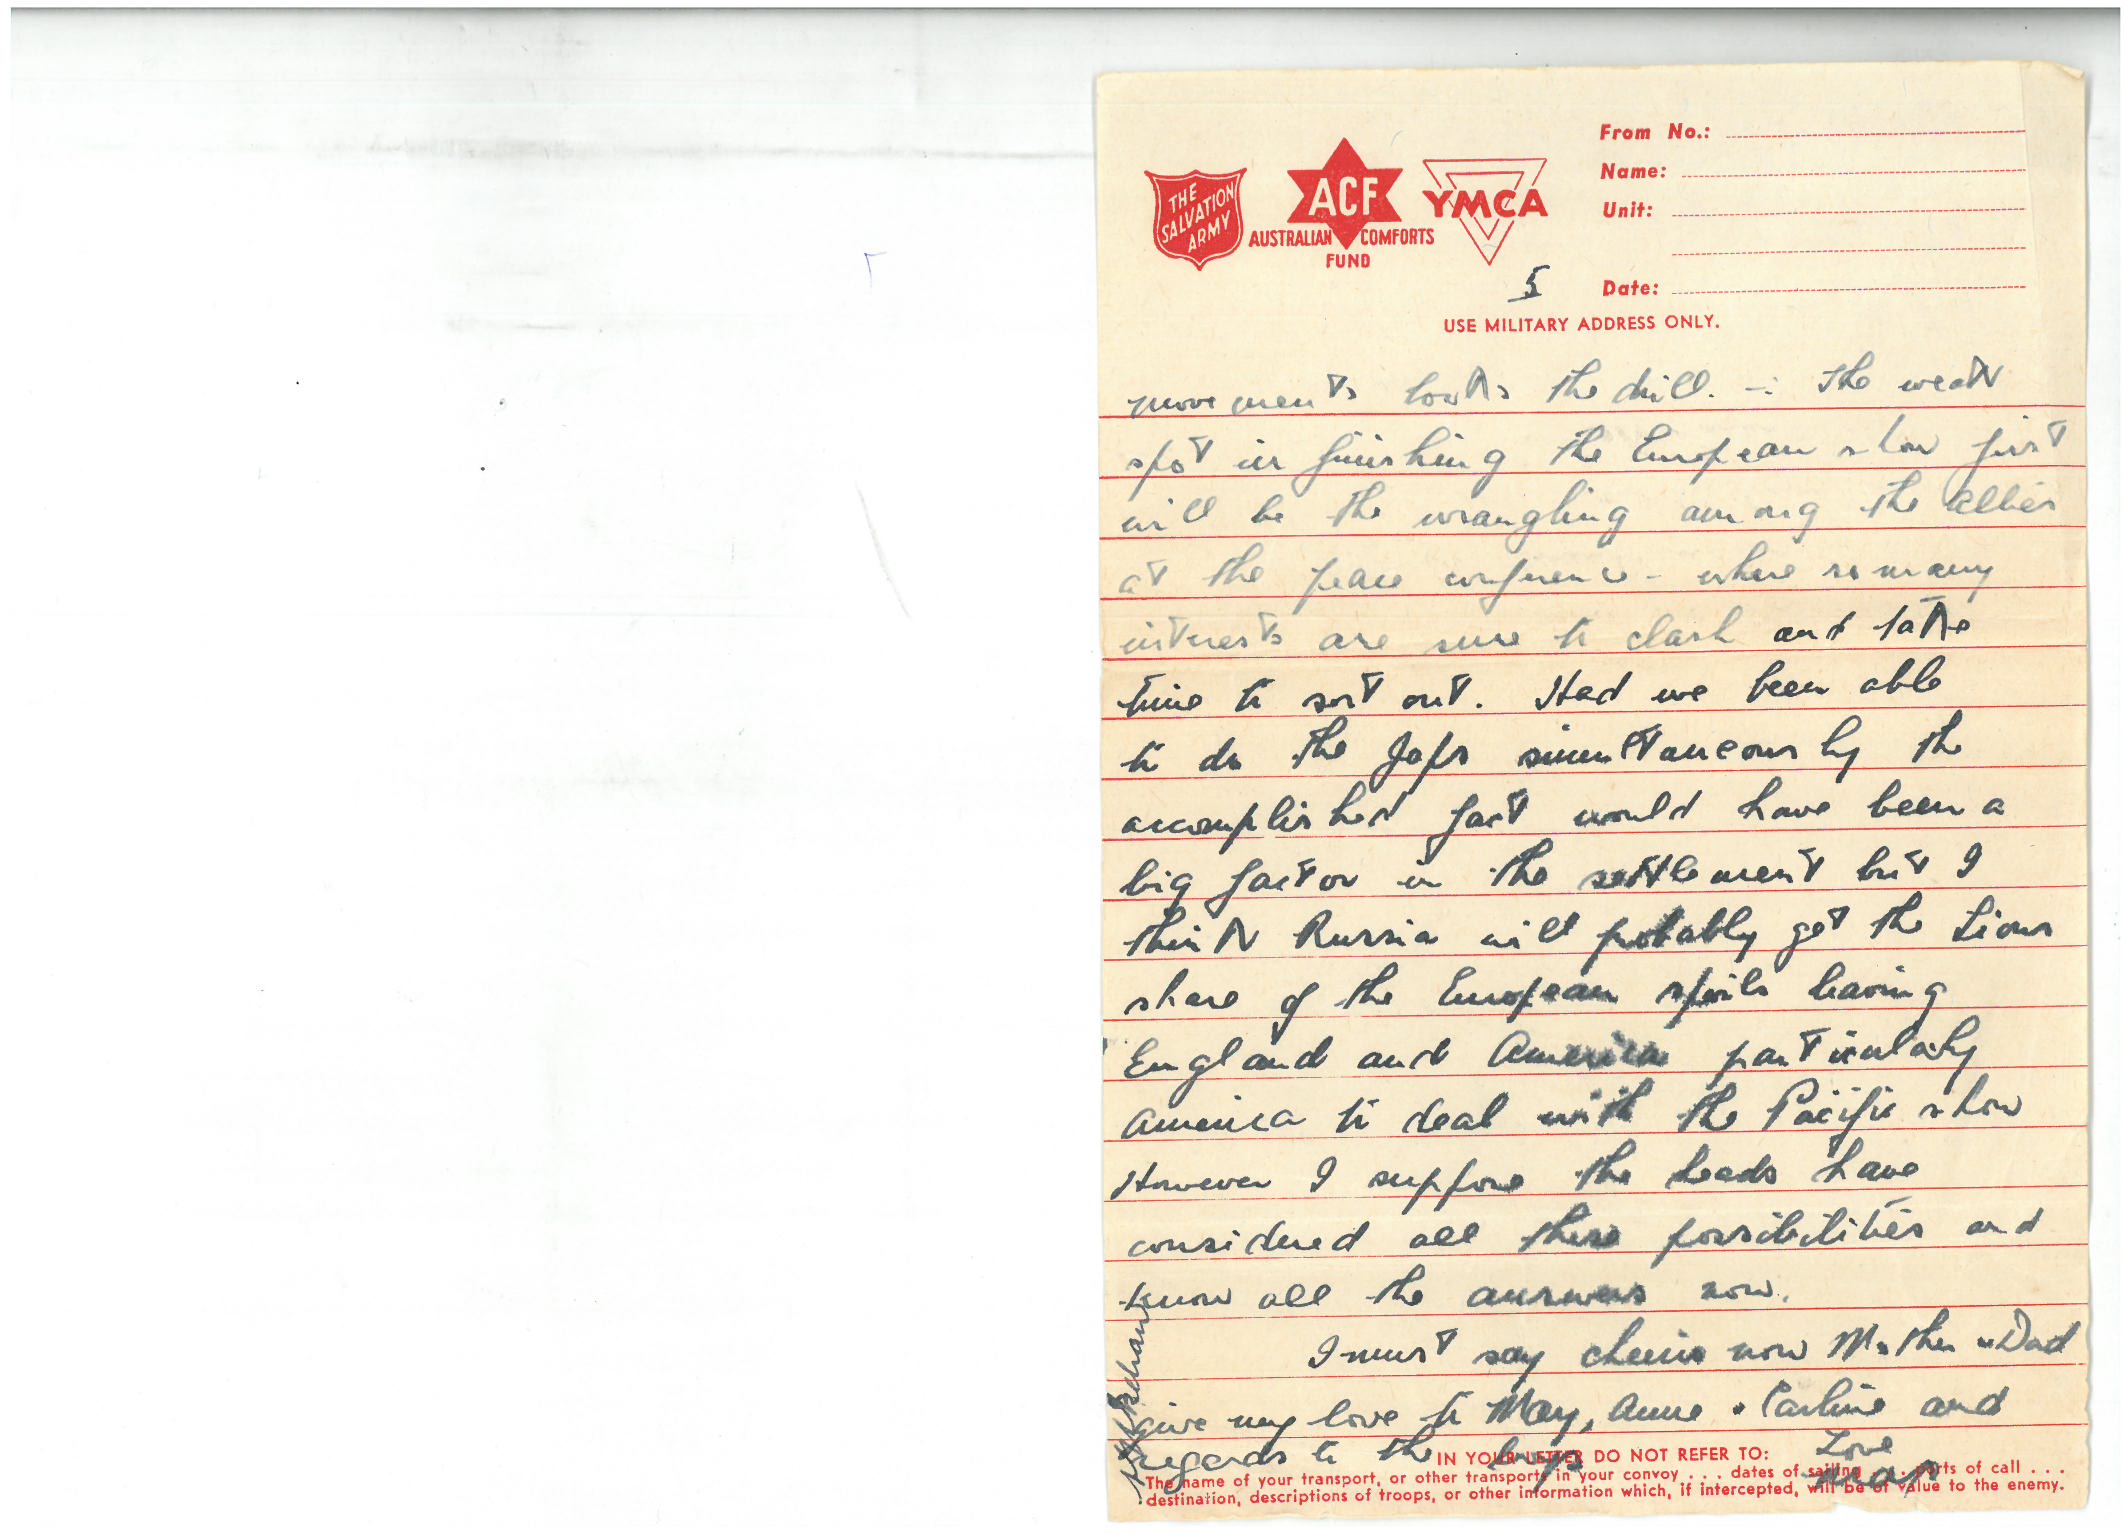 THE SALVATION ARMY
ACF
AUSTRALIAN COMFORTS FUND
YMCA
From No.:
Name:
Unit:
5
Date:
USE MILITARY ADDRESS ONLY.
movements looks the drill. - The weak
spot in finishing the European show first
will be the wrangling among the allies
at the peace conference - where so many
interests are sure to clash and take
time to sort out. Had we been able
to do the Japs simultaneously the
accomplished fact would have been a
big factor in the settlement but I
think Russia will probably get the Lions
share of the European spoils leaving
England and America particularly
America to deal with the Pacific show
However I suppose the heads have
considered all these possibilities and
know all the answers now.
I must say cheerio now Mother & Dad
give my love to May, Anne & Carline and
regards to the boys
Love
IN YOUR LETTER DO NOT REFER TO:
The name of your transport, or other transports in your convoy . . . dates of sailing . . . ports of call . . .
destination, descriptions of troops, or other information which, if intercepted, will be of value to the enemy.